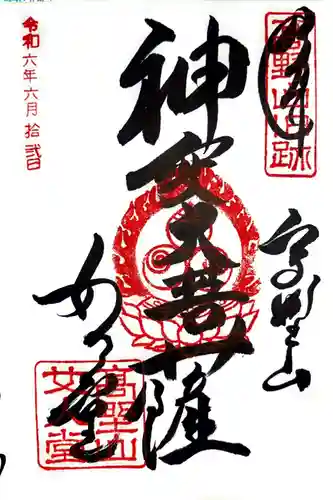 奉拝
高野山
神変大菩薩
女人堂
高野山
女人堂
令和六年六月拾弐日